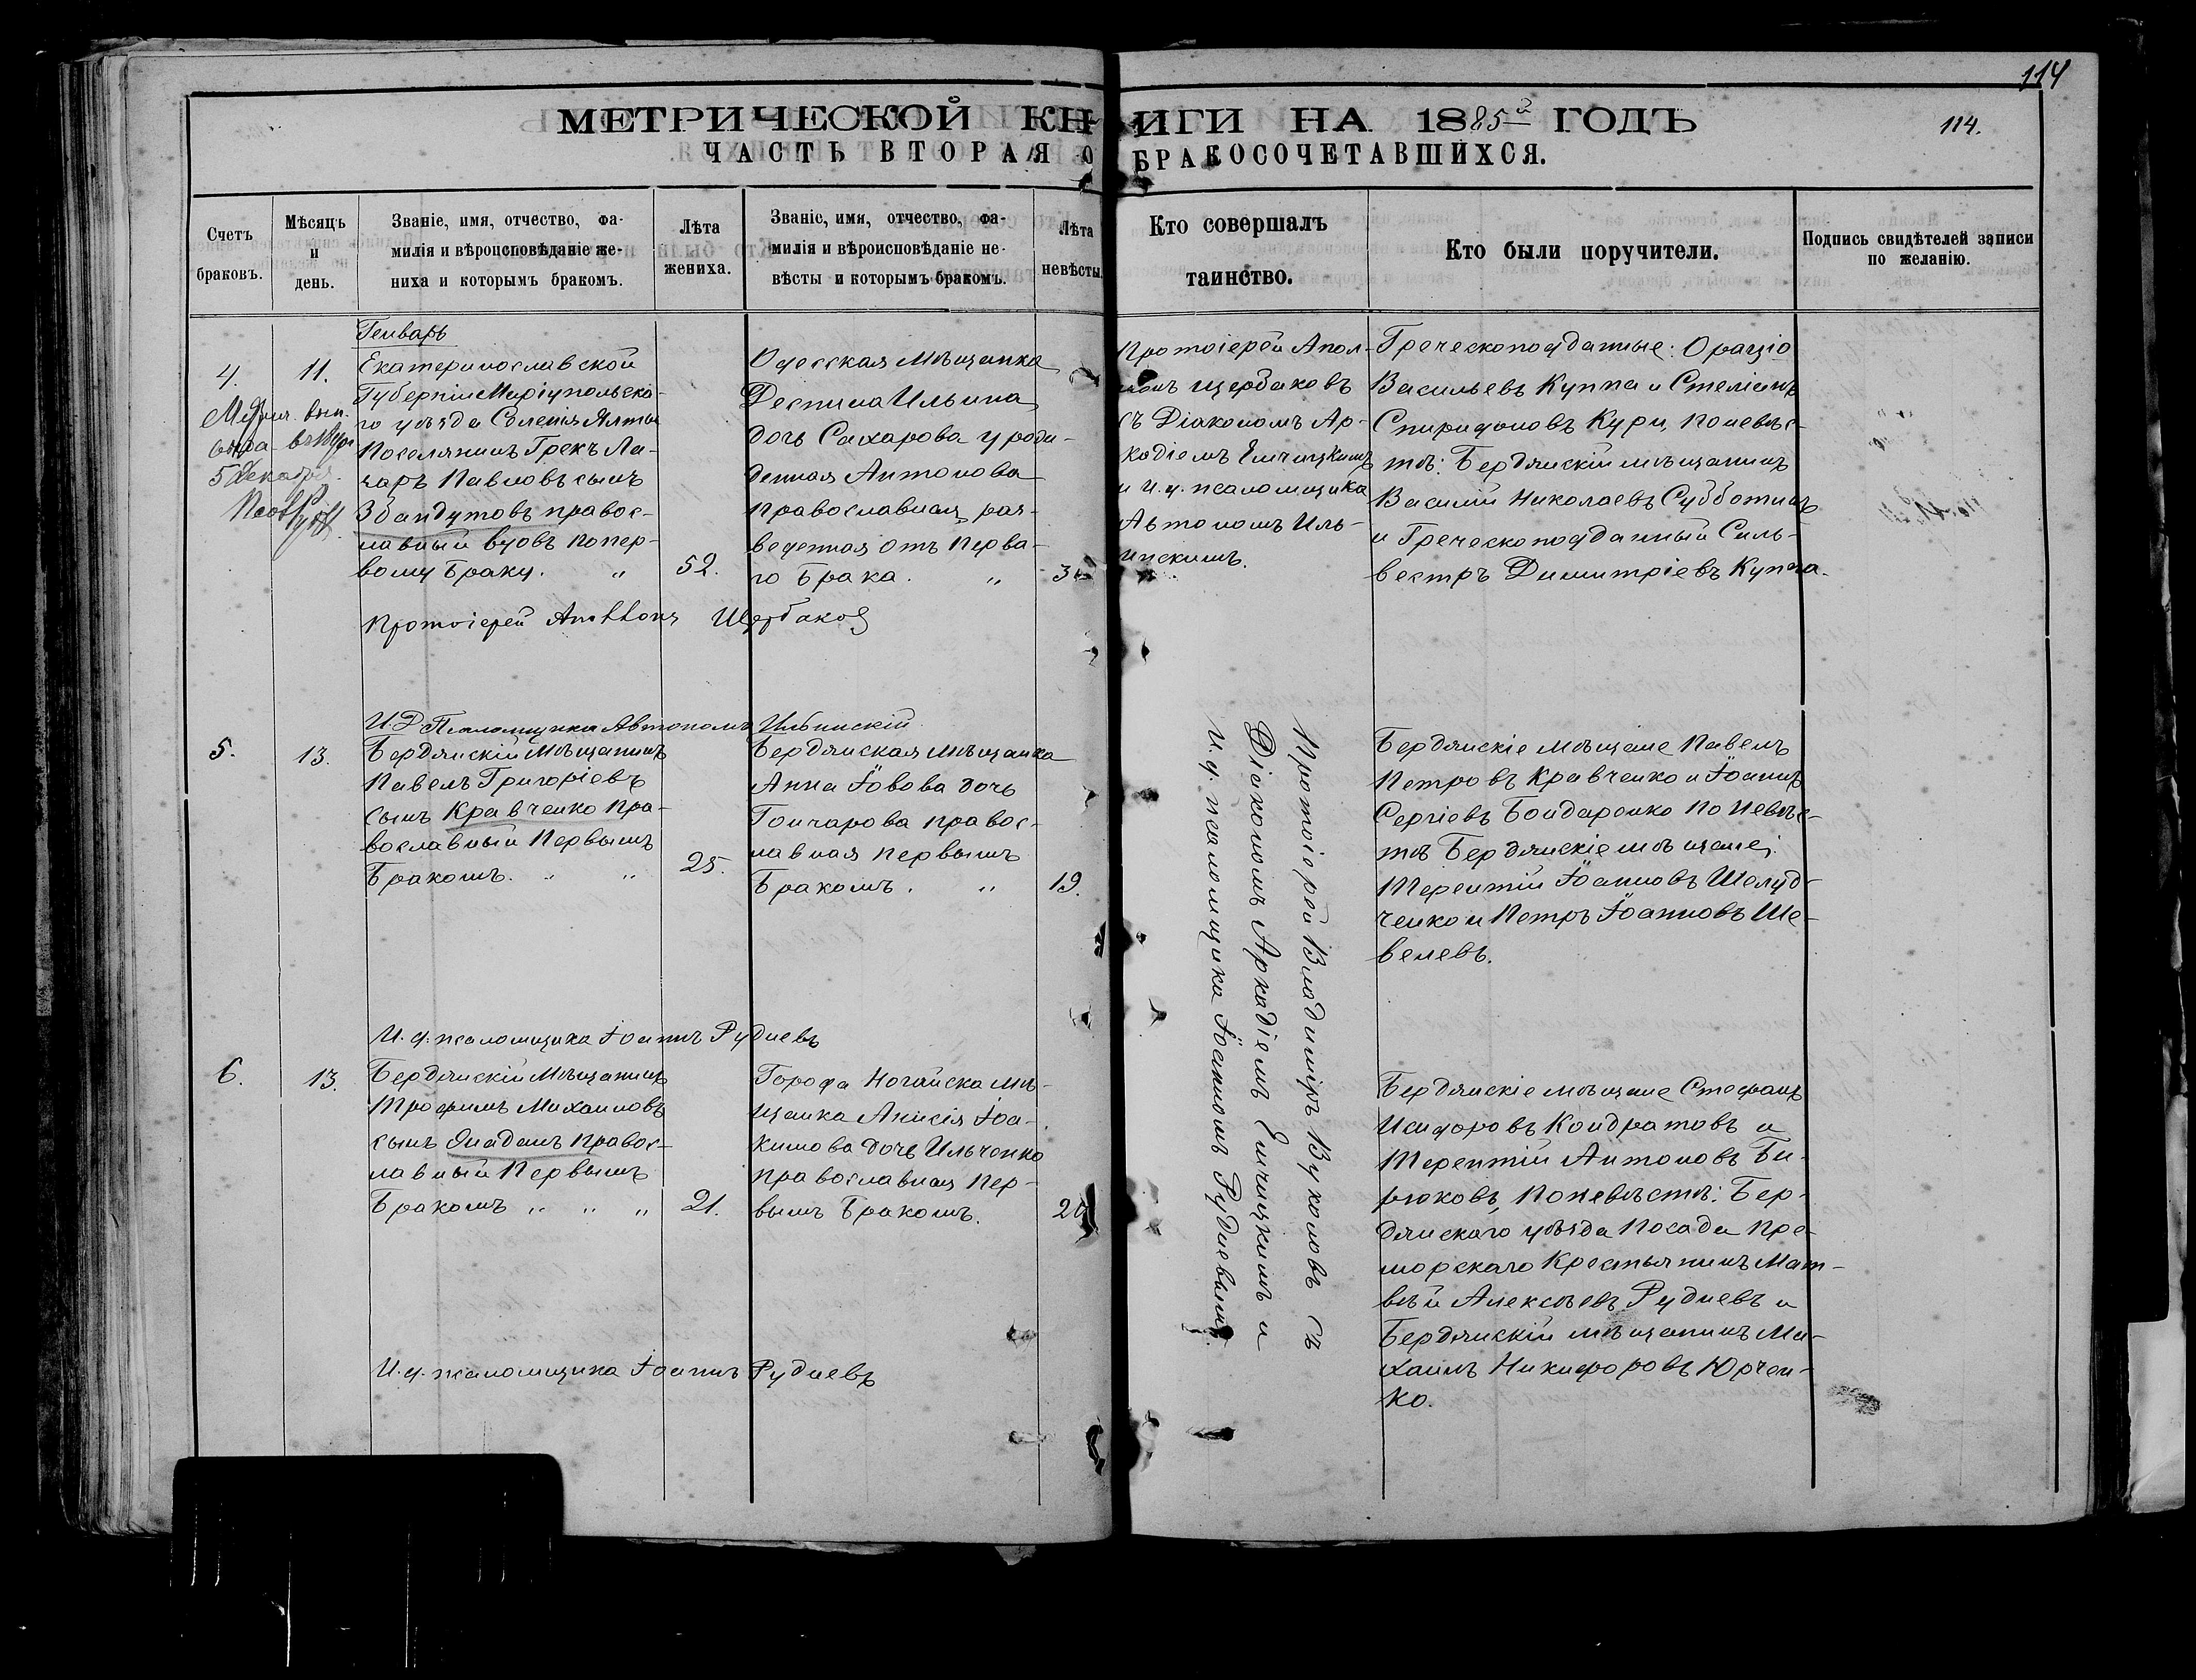 114
МЕТРИЧЕСКОЙ КНИГИ НА 1885й ГОДЪ
114.
ЧАСТЬ ВТОРАЯ О БРАКОСОЧЕТАВШИХСЯ.
Счетъ
браковъ.
Мѣсяцъ
и
день.
Званіе, имя, отчество, фа-
милія и вѣроисповѣданіе же-
ниха и которымъ бракомъ.
Лѣта
жениха.
Званіе, имя, отчество, фа-
милія и вѣроисповѣданіе не-
вѣсты и которымъ бракомъ.
Лѣта
невѣсты.
Кто совершалъ
таинство.
Кто были поручители.
Подпись свидѣтелей записи
по желанію.
Генварь
4.
11.
5 Декабря
Екатеринославской
Губерніи Маріупольска-
го уѣзда Селенія Ялты
Поселянинъ Грекъ Ла-
зарь Павловъ сынъ
Збандутовъ правос-
лавный вдовъ попер-
вому Браку. "
52.
Одесская Мѣщанка
Деспина Ильина
дочь Сахарова урож-
денная Антонова
православная, раз-
веденная отъ Перва-
го Брака. "
Протоіерей Апол-
лонъ Щербаковъ
съ Діакономъ Ар-
кадіемъ Ячницкимъ
и И. д. псаломщика
Автономъ Иль-
инскимъ.
Греческоподданные: Ораціо
Васильевъ Куппа и Стеліанъ
Спиридоновъ Кури, поневѣс-
тѣ: Бердянскій мѣщанинъ
Василій Николаевъ Субботинъ
и Греческоподданный Силь-
вестръ Димитріевъ Куппа.
Протоіерей Аполлонъ Щербаковъ
И. Д. Псаломщика Автономъ Ильинскій
5.
13.
Бердянскій Мѣщанинъ
Павелъ Григоріевъ
сынъ Кравченко пра-
вославный Первымъ
Бракомъ. " "
25.
Бердянская мѣщанка
Анна Іовова дочь
Гончарова правос-
лавная первымъ
Бракомъ. "
19.
Протоіерей Владиміръ Вуколовъ съ
Діакономъ Аркадіемъ Ячницкимъ и
И. д. псаломщика Іоанномъ Рудневымъ.
Бердянскіе мѣщане Павелъ
Петровъ Кравченко и Іоаннъ
Сергіевъ Бондаренко по невѣс-
тѣ Бердянскіе мѣщане;
Терентій Іоанновъ Шелуд-
ченко и Петръ Іоанновъ Ше-
велевъ.
И. д. псаломщика Іоаннъ Рудневъ
6.
13.
Бердянскій Мѣщанинъ
Трофимъ Михаиловъ
сынъ правос-
лавный Первымъ
Бракомъ " " "
21.
Города Ногайска мѣ-
щанка Анисія Іоа-
кимова дочь Ильченко
православная пер-
вымъ Бракомъ.
Бердянскіе мѣщане Стефанъ
Исидоровъ Кондратовъ и
Терентій Антоновъ Би-
рюковъ, поневѣстѣ: Бер-
дянскаго уѣзда Посада При-
морскаго Крестьянинъ Мат-
вѣй Алексѣевъ Рудневъ и
Бердянскій мѣщанинъ Ми-
хаилъ Никифоровъ Юрчен-
ко.
И. д. псаломщика Іоаннъ Рудневъ